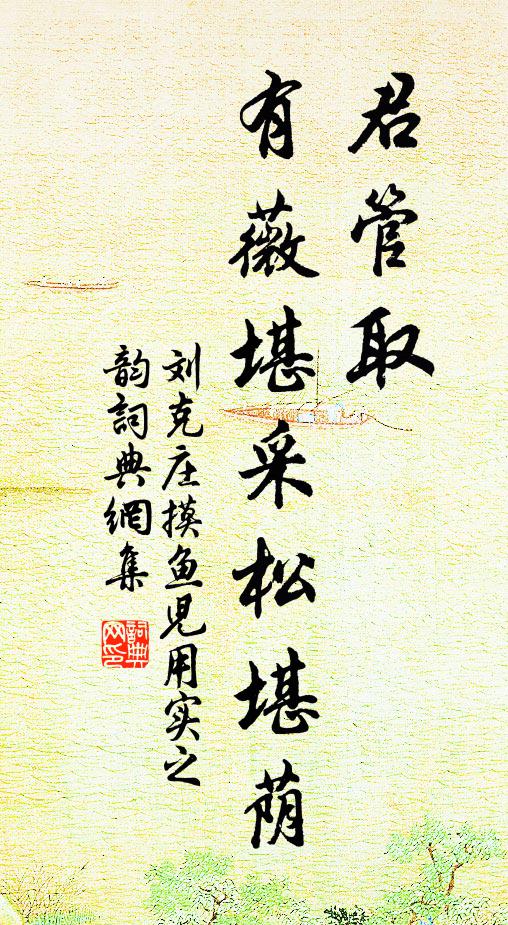 君管取
有薇堪采松堪荫
刘克庄摸鱼児用实之
韵詞典網集
詞典网印